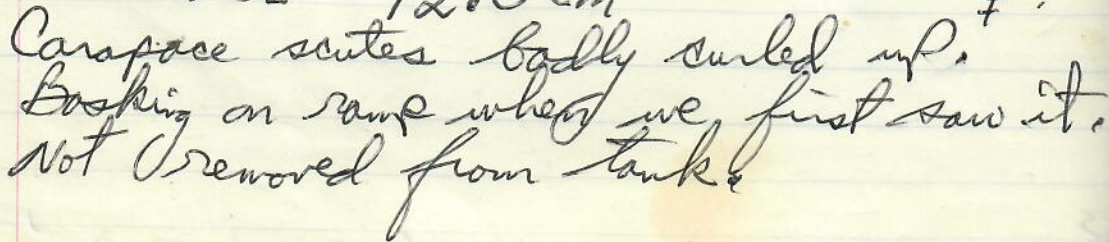 Carapace scutes badly curled up.
Basking on ramp when we first saw it.
Not removed from tank.